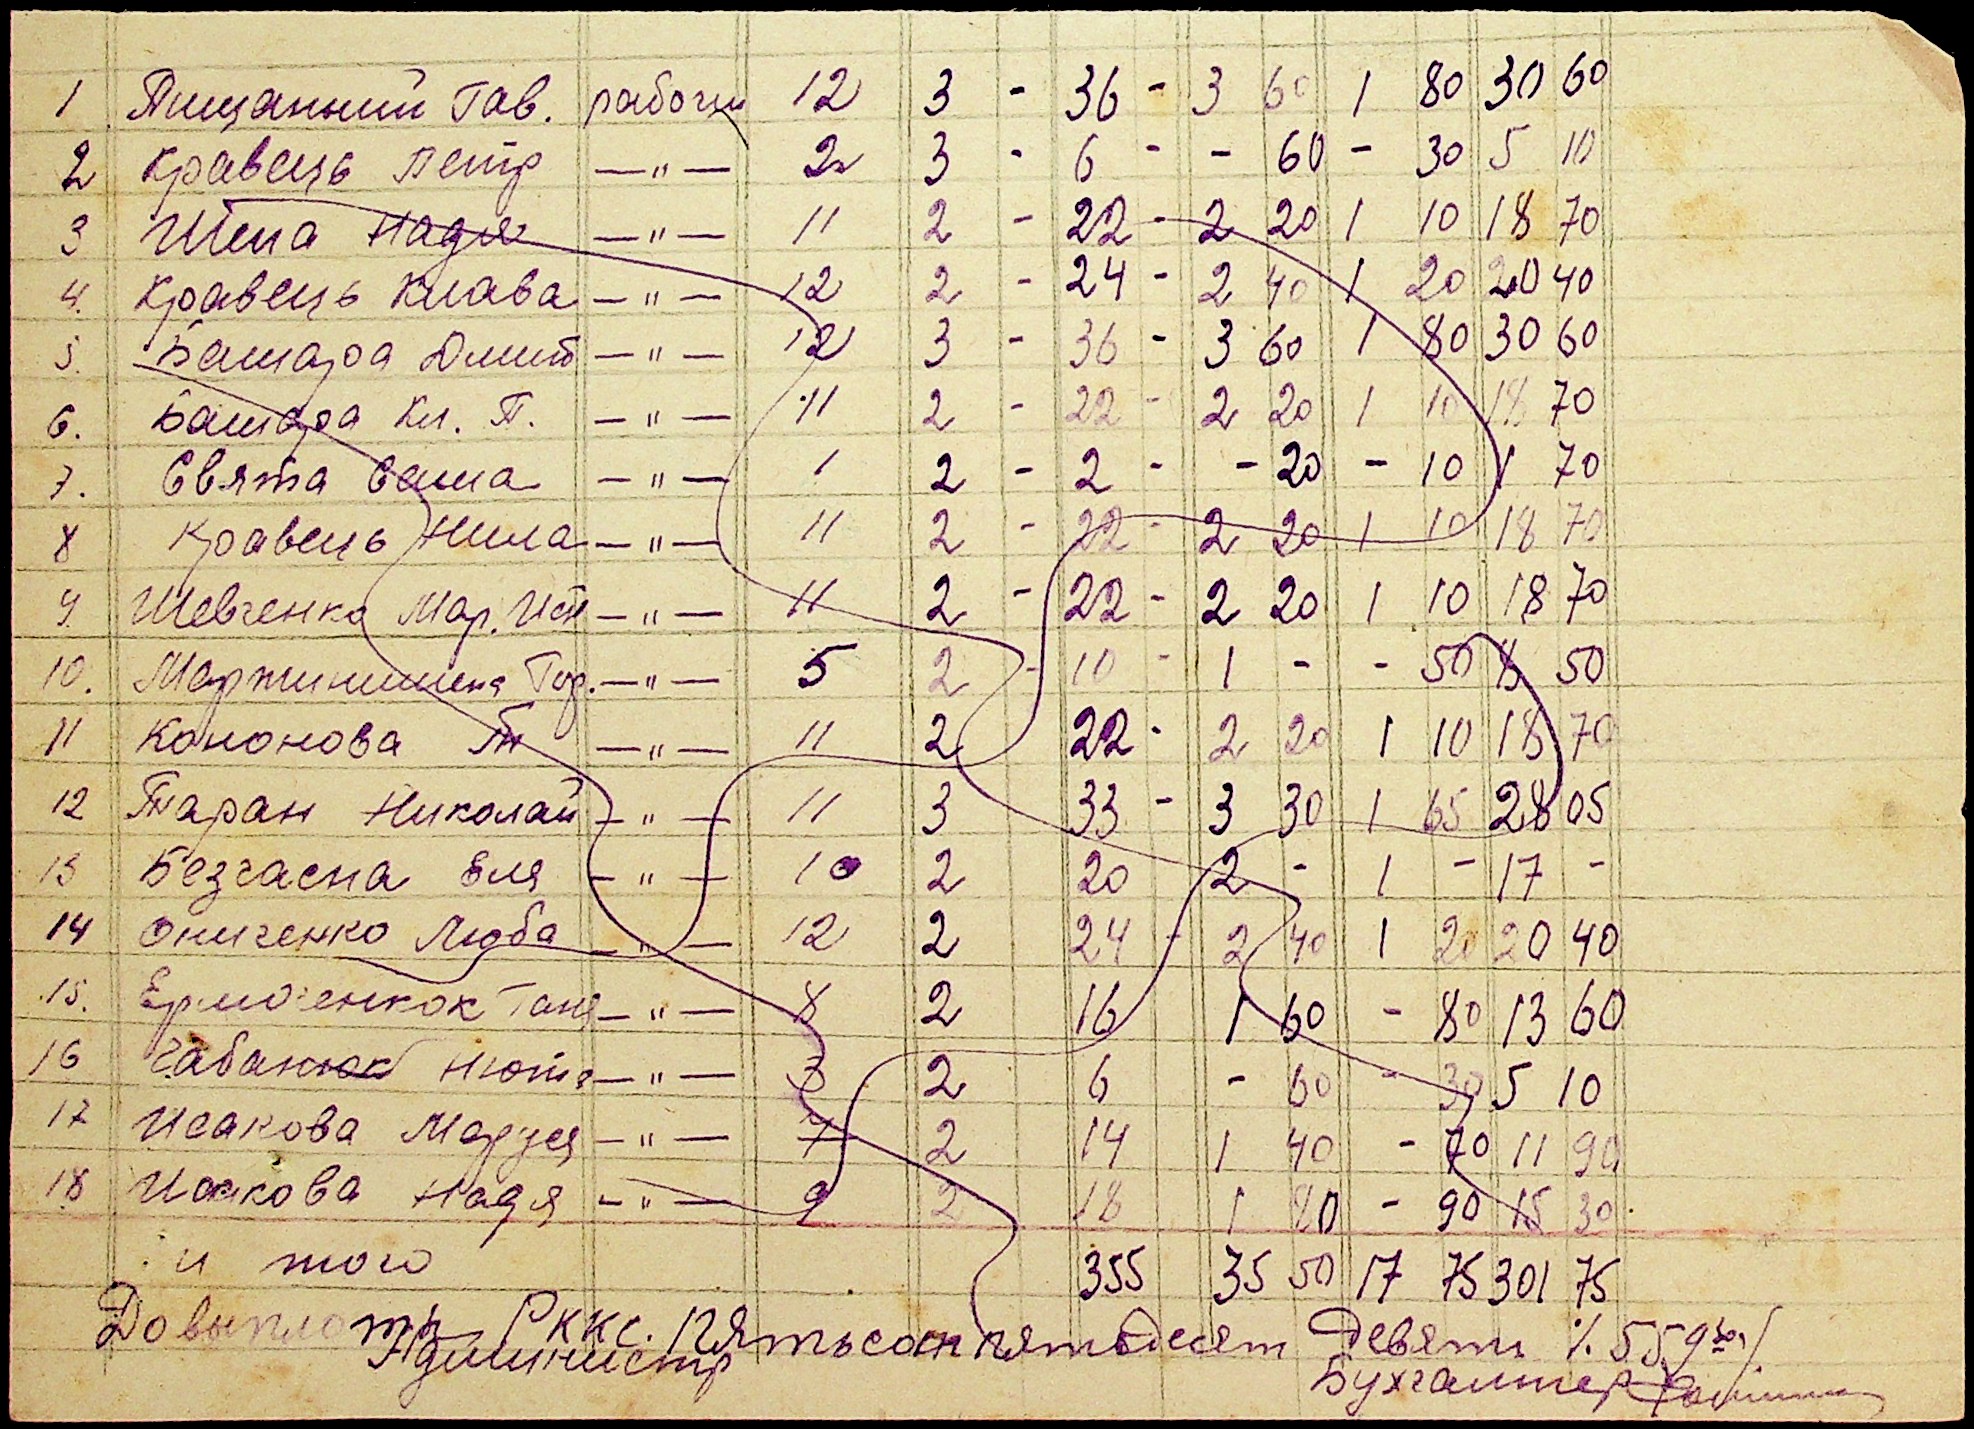 1 Пищанний Гав. рабочи 12 3 - 36 - 3 60 1 80 30 60
2 Кравець Петр —"— 2 3 - 6 - - 60 - 30 5 10
3 Шена Надя —"— 11 2 - 22 - 2 20 1 10 18 70
4. Кравець Клава —"— 12 2 - 24 - 2 40 1 20 20 40
5. Башара Дмит —"— 12 3 - 36 - 3 60 1 80 30 60
6. Башара Кл. П. —"— 11 2 - 22 - 2 20 1 10 18 70
7. Свята Саша —"— 1 2 - 2 - - 20 - 10 1 70
8 Кравець Нила —"— 11 2 - 22 - 2 20 1 10 18 70
9. Шевченко Мар. —"— 11 2 - 22 - 2 20 1 10 18 70
10. —"— 5 2 - 10 - 1 - - 50 8 50
11 Кононова —"— 11 2 22 - 2 20 1 10 18 70
12 Таран Николай —"— 11 3 33 - 3 30 1 65 28 05
13 Безчасна Еля —"— 10 2 20 2 - 1 - 17 -
14 Ониченко Люба —"— 12 2 24 - 2 40 1 20 20 40
15. Таня —"— 8 2 16 1 60 - 80 13 60
16 Чабанюк Нюта —"— 3 2 6 - 60 - 30 5 10
17 Исакова Маруся —"— 7 2 14 1 40 - 70 11 90
18 Исакова Надя —"— 9 2 18 1 80 - 90 15 30
и того 355 35 50 17 75 301 75
До выплаты Пятьсот пятьдесят Девять
Администр Бухгалтер